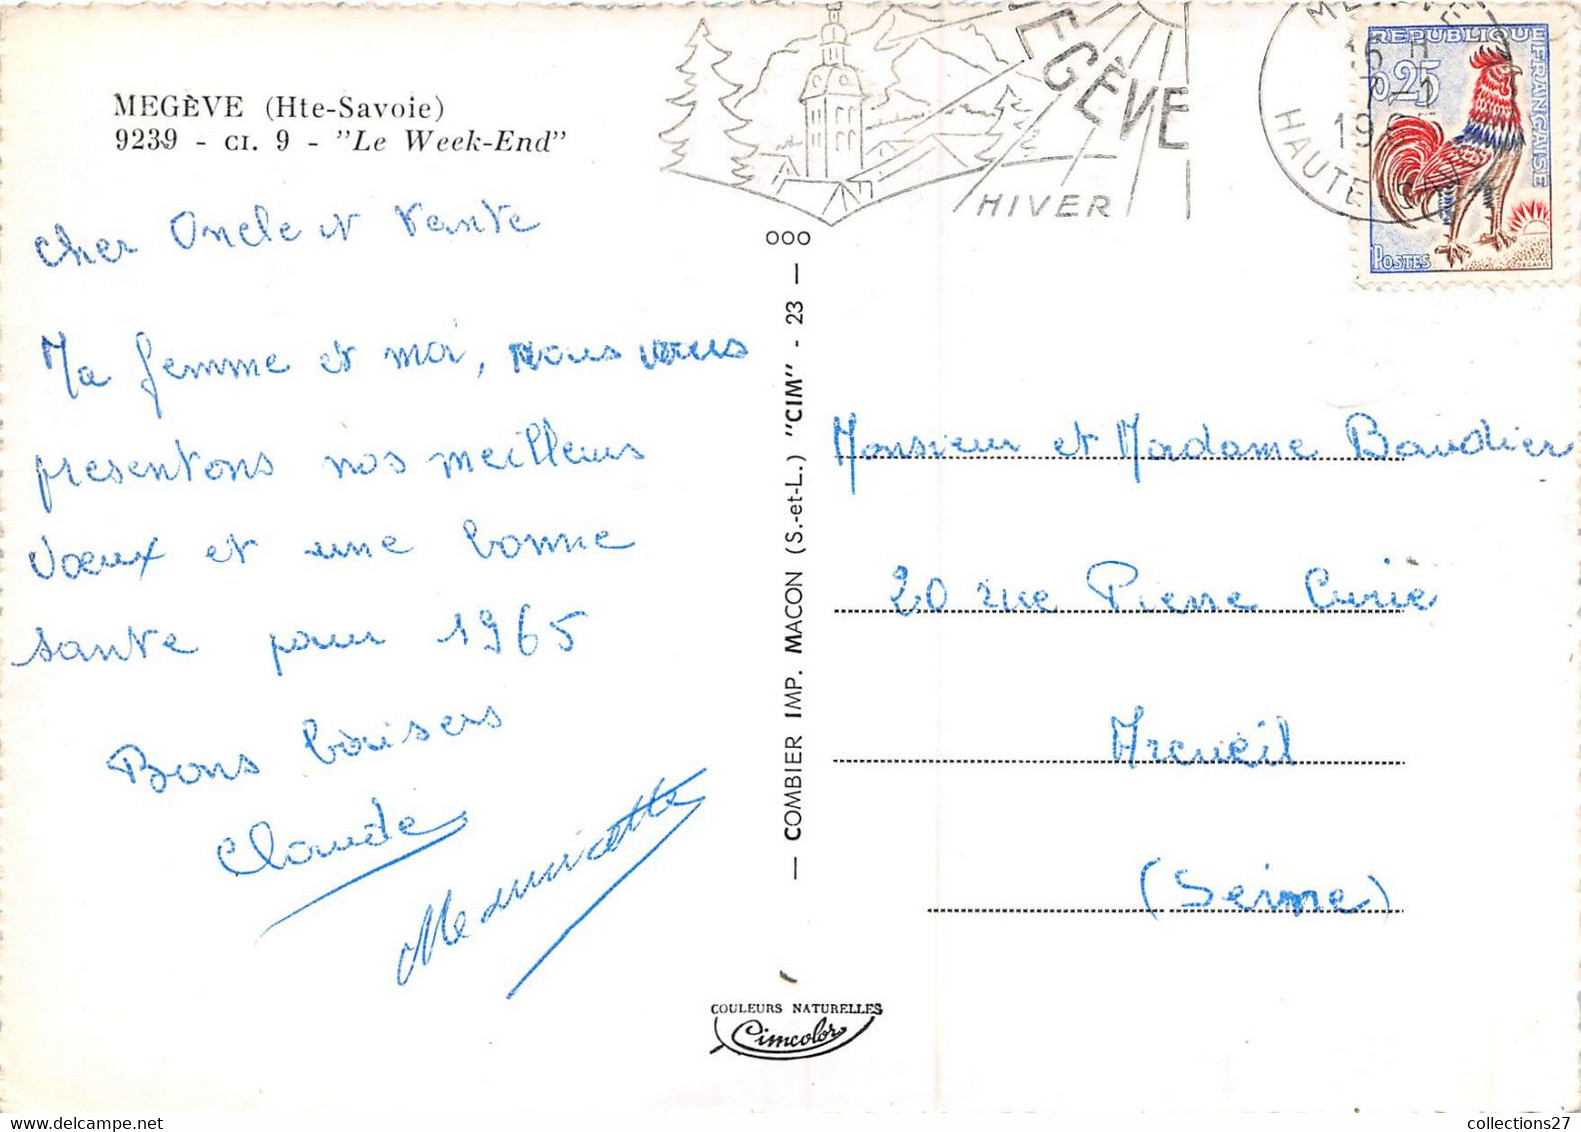 MEGÈVE (Hte-Savoie)
9239 - CI. 9 - "Le Week-End"
cher Oncle et Tante
Ma femme et moi, nous vous
presentons nos meilleurs
voeux et une bonne
sante pour 1965
Bons baisers
Claude
MEGÈVE
HIVER
HAUTE-S
16 H
7-1
19
REPUBLIQUE FRANÇAISE
0,25
POSTES
DECARIS
000
— COMBIER IMP. MACON (S.-et-L.) "CIM" - 23 —
Monsieur et Madame Baudier
20 rue Pierre Curie
Arcueil
(Seine)
COULEURS NATURELLES
Cimcolor
collections27